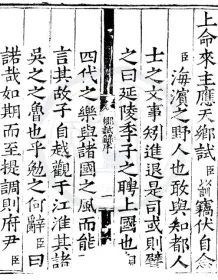 上命來主應天鄉試臣竊伏自念
臣海濱之野人也敢與知都人
士之文事矧進退是司或則譬
之曰延陵季子之聘上國也
鄉試錄序
四代之樂與諸國之風而能
言其故子自越觀于江淮其諸
吳之之魯也乎勉之何辭臣曰
諾哉如期而至提調則府尹臣